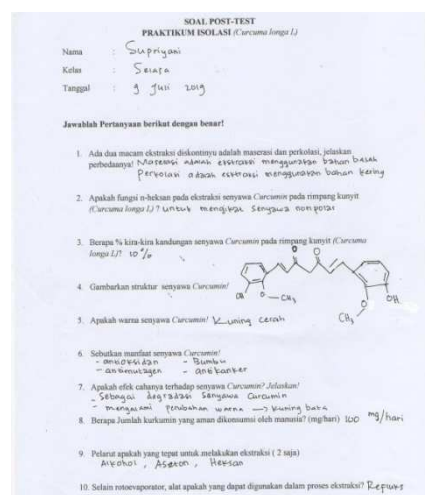 SOAL POST-TEST
PRAKTIKUM ISOLASI (Curcuma longa L)
Nama : Supriyani
Kelas : Selasa
Tanggal : 9 Juli 2019
Jawablah Pertanyaan berikut dengan benar!
1. Ada dua macam ekstraksi diskontinyu adalah maserasi dan perkolasi, jelaskan
perbedaanya! Maserasi adalah ekstraksi menggunakan bahan basah
Perkolasi adalah ekstraksi menggunakan bahan kering
2. Apakah fungsi n-heksan pada ekstraksi senyawa Curcumin pada rimpang kunyit
(Curcuma longa L) ? untuk mengikat senyawa non polar
3. Berapa % kira-kira kandungan senyawa Curcumin pada rimpang kunyit (Curcuma
longa L)? 10 %
O O
4. Gambarkan struktur senyawa Curcumin!
OH O — CH3 O OH
CH3
5. Apakah warna senyawa Curcumin! Kuning cerah
6. Sebutkan manfaat senyawa Curcumin!
- antioksidan - Bumbu
- antimutagen - antikanker
7. Apakah efek cahanya terhadap senyawa Curcumin? Jelaskan!
- Sebagai degradasi senyawa Curcumin
- mengalami perubahan warna → kuning bata
8. Berapa Jumlah kurkumin yang aman dikonsumsi oleh manusia? (mg/hari) 100 mg/hari
9. Pelarut apakah yang tepat untuk melakukan ekstraksi ( 2 saja)
Alkohol , Aseton , Heksan
10. Selain rotoevaporator, alat apakah yang dapat digunakan dalam proses ekstraksi? Refluks